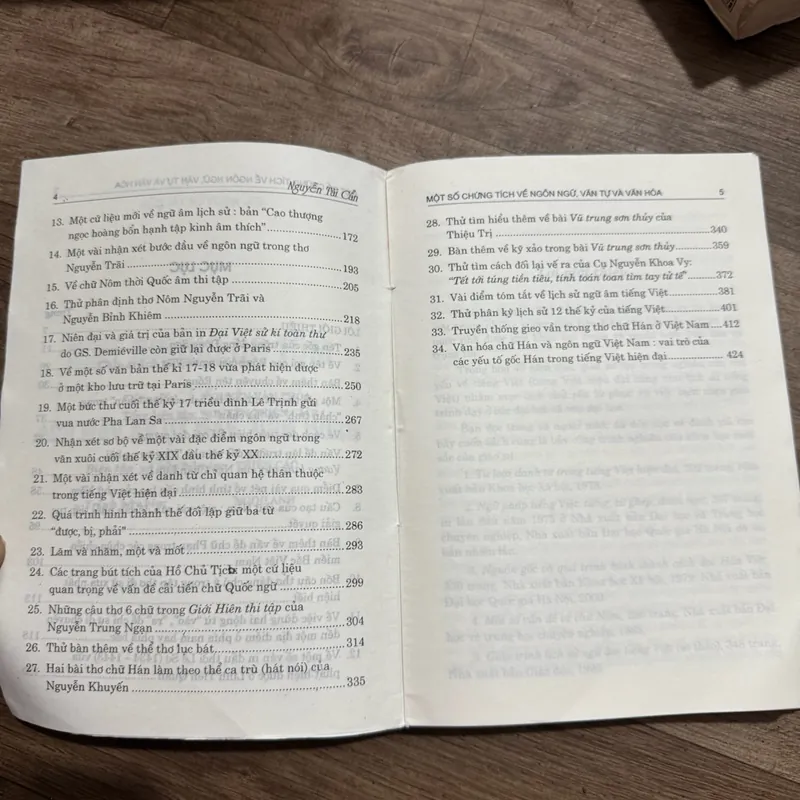 4 Nguyễn Tài Cẩn
13. Một cứ liệu mới về ngữ âm lịch sử : bản "Cao thượng
ngọc hoàng bổn hạnh tập kinh âm thích" 172
14. Một vài nhận xét bước đầu về ngôn ngữ trong thơ
Nguyễn Trãi 193
15. Về chữ Nôm thời Quốc âm thi tập 205
16. Thử phân định thơ Nôm Nguyễn Trãi và
Nguyễn Bỉnh Khiêm 218
17. Niên đại và giá trị của bản in Đại Việt sử kí toàn thư
do GS. Demiéville còn giữ lại được ở Paris 235
18. Về một số văn bản thế kỉ 17-18 vừa phát hiện được
ở một kho lưu trữ tại Paris 250
19. Một bức thư cuối thế kỷ 17 triều đình Lê Trịnh gửi
vua nước Pha Lan Sa 267
20. Nhận xét sơ bộ về một vài đặc điểm ngôn ngữ trong
văn xuôi cuối thế kỷ XIX đầu thế kỷ XX 272
21. Một vài nhận xét về danh từ chỉ quan hệ thân thuộc
trong tiếng Việt hiện đại 283
22. Quá trình hình thành thế đối lập giữ ba từ
"được, bị, phải" 286
23. Lăm và nhăm, một và mốt 293
24. Các trang bút tích của Hồ Chủ Tịch: một cứ liệu
quan trọng về vấn đề cải tiến chữ Quốc ngữ 299
25. Những câu thơ 6 chữ trong Giới Hiên thi tập của
Nguyễn Trung Ngạn 304
26. Thử bàn thêm về thể thơ lục bát 314
27. Hai bài thơ chữ Hán làm theo thể ca trù (hát nói) của
Nguyễn Khuyến 335
MỘT SỐ CHỨNG TÍCH VỀ NGÔN NGỮ, VĂN TỰ VÀ VĂN HÓA 5
28. Thử tìm hiểu thêm về bài Vũ trung sơn thủy của
Thiệu Trị 340
29. Bàn thêm về kỹ xảo trong bài Vũ trung sơn thủy 359
30. Thử tìm cách đối lại vế ra của Cụ Nguyễn Khoa Vy:
"Tết tới túng tiền tiêu, tính toán toan tìm tay tử tế" 372
31. Vài điểm tóm tắt về lịch sử ngữ âm tiếng Việt 381
32. Thử phân kỳ lịch sử 12 thế kỷ của tiếng Việt 401
33. Truyền thống gieo vần trong thơ chữ Hán ở Việt Nam 412
34. Văn hóa chữ Hán và ngôn ngữ Việt Nam : vai trò của
các yếu tố gốc Hán trong tiếng Việt hiện đại 424